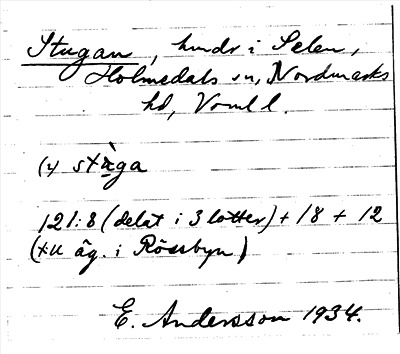 Stugan, hmdr i Selen,
Holmedals sn, Nordmarks
hd, Vrml l.
(4 stùga
121:8 (delat i 3 lotter) + 18 + 12
äg. i Rösbyn)
E. Andersson 1934.